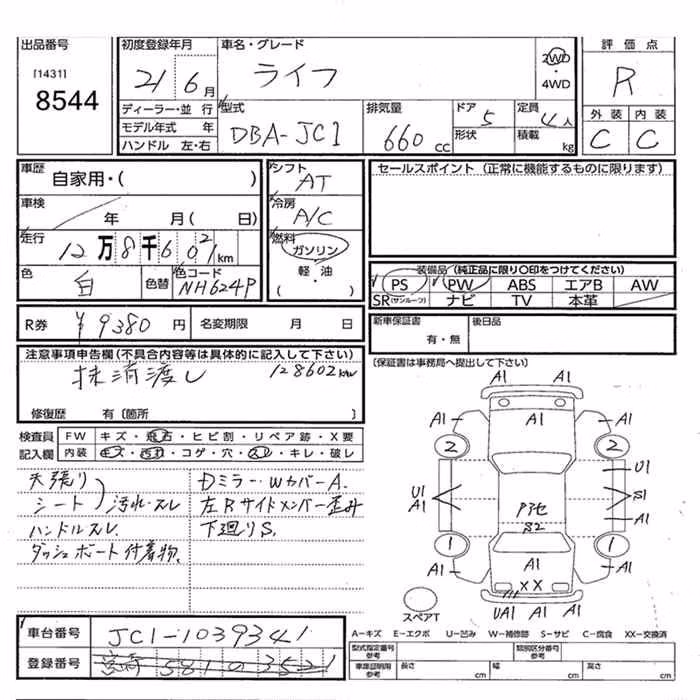 出品番号 初度登録年月 車名・グレード 2WD ・ 4WD 評価点
[1431] 8544 21 6月 ライフ R
ディーラー・並行 型式 排気量 ドア 定員 外装 内装
モデル年式 年 DBA-JC1 660cc 5 4人 C C
ハンドル 左・右 形状 積載 kg
車歴 自家用・( ) シフト AT セールスポイント(正常に機能するものに限ります)
車検 年 月( 日) 冷房 A/C
走行 12万8千602km 燃料 ガソリン
軽・油 ・( )
色 白 色替 色コード NH624P
装備品(純正品に限り○印をつけてください)
PS PW ABS エアB AW
SR(サンルーフ) ナビ TV 本革
R券 ¥9380円 名変期限 月 日
新車保証書 有・無 後日品
注意事項申告欄(不具合内容等は具体的に記入して下さい) (保証書は事務局へ提出して下さい)
抹消渡し 128602km
修復歴 有〔箇所 〕
検査員 FW キズ・飛石・ヒビ割・リペア跡・X要
記入欄 内装 キズ・汚れ・コゲ・穴・スレ・キレ・破レ
天張り
シート)汚れ・スレ
ハンドルスレ
ダッシュボート付着物
Dミラー・WカバーA.
左Rサイドメンバー歪み
下廻りS.
A1 A1
A1 A1 A1
2 2
U1 A1 U1 S1 A1
P他 S2
1 1
A1 A1 A1
XX
UA1 A1 A1
スペアT
A-キズ E-エクボ U-凹み W-補修跡 S-サビ C-腐食 XX-交換済
車台番号 JC1-1039341
登録番号 581 3521
型式指定番号 参考 類別区分番号 参考
車庫証明用 参考 長さ cm 幅 cm 高さ cm